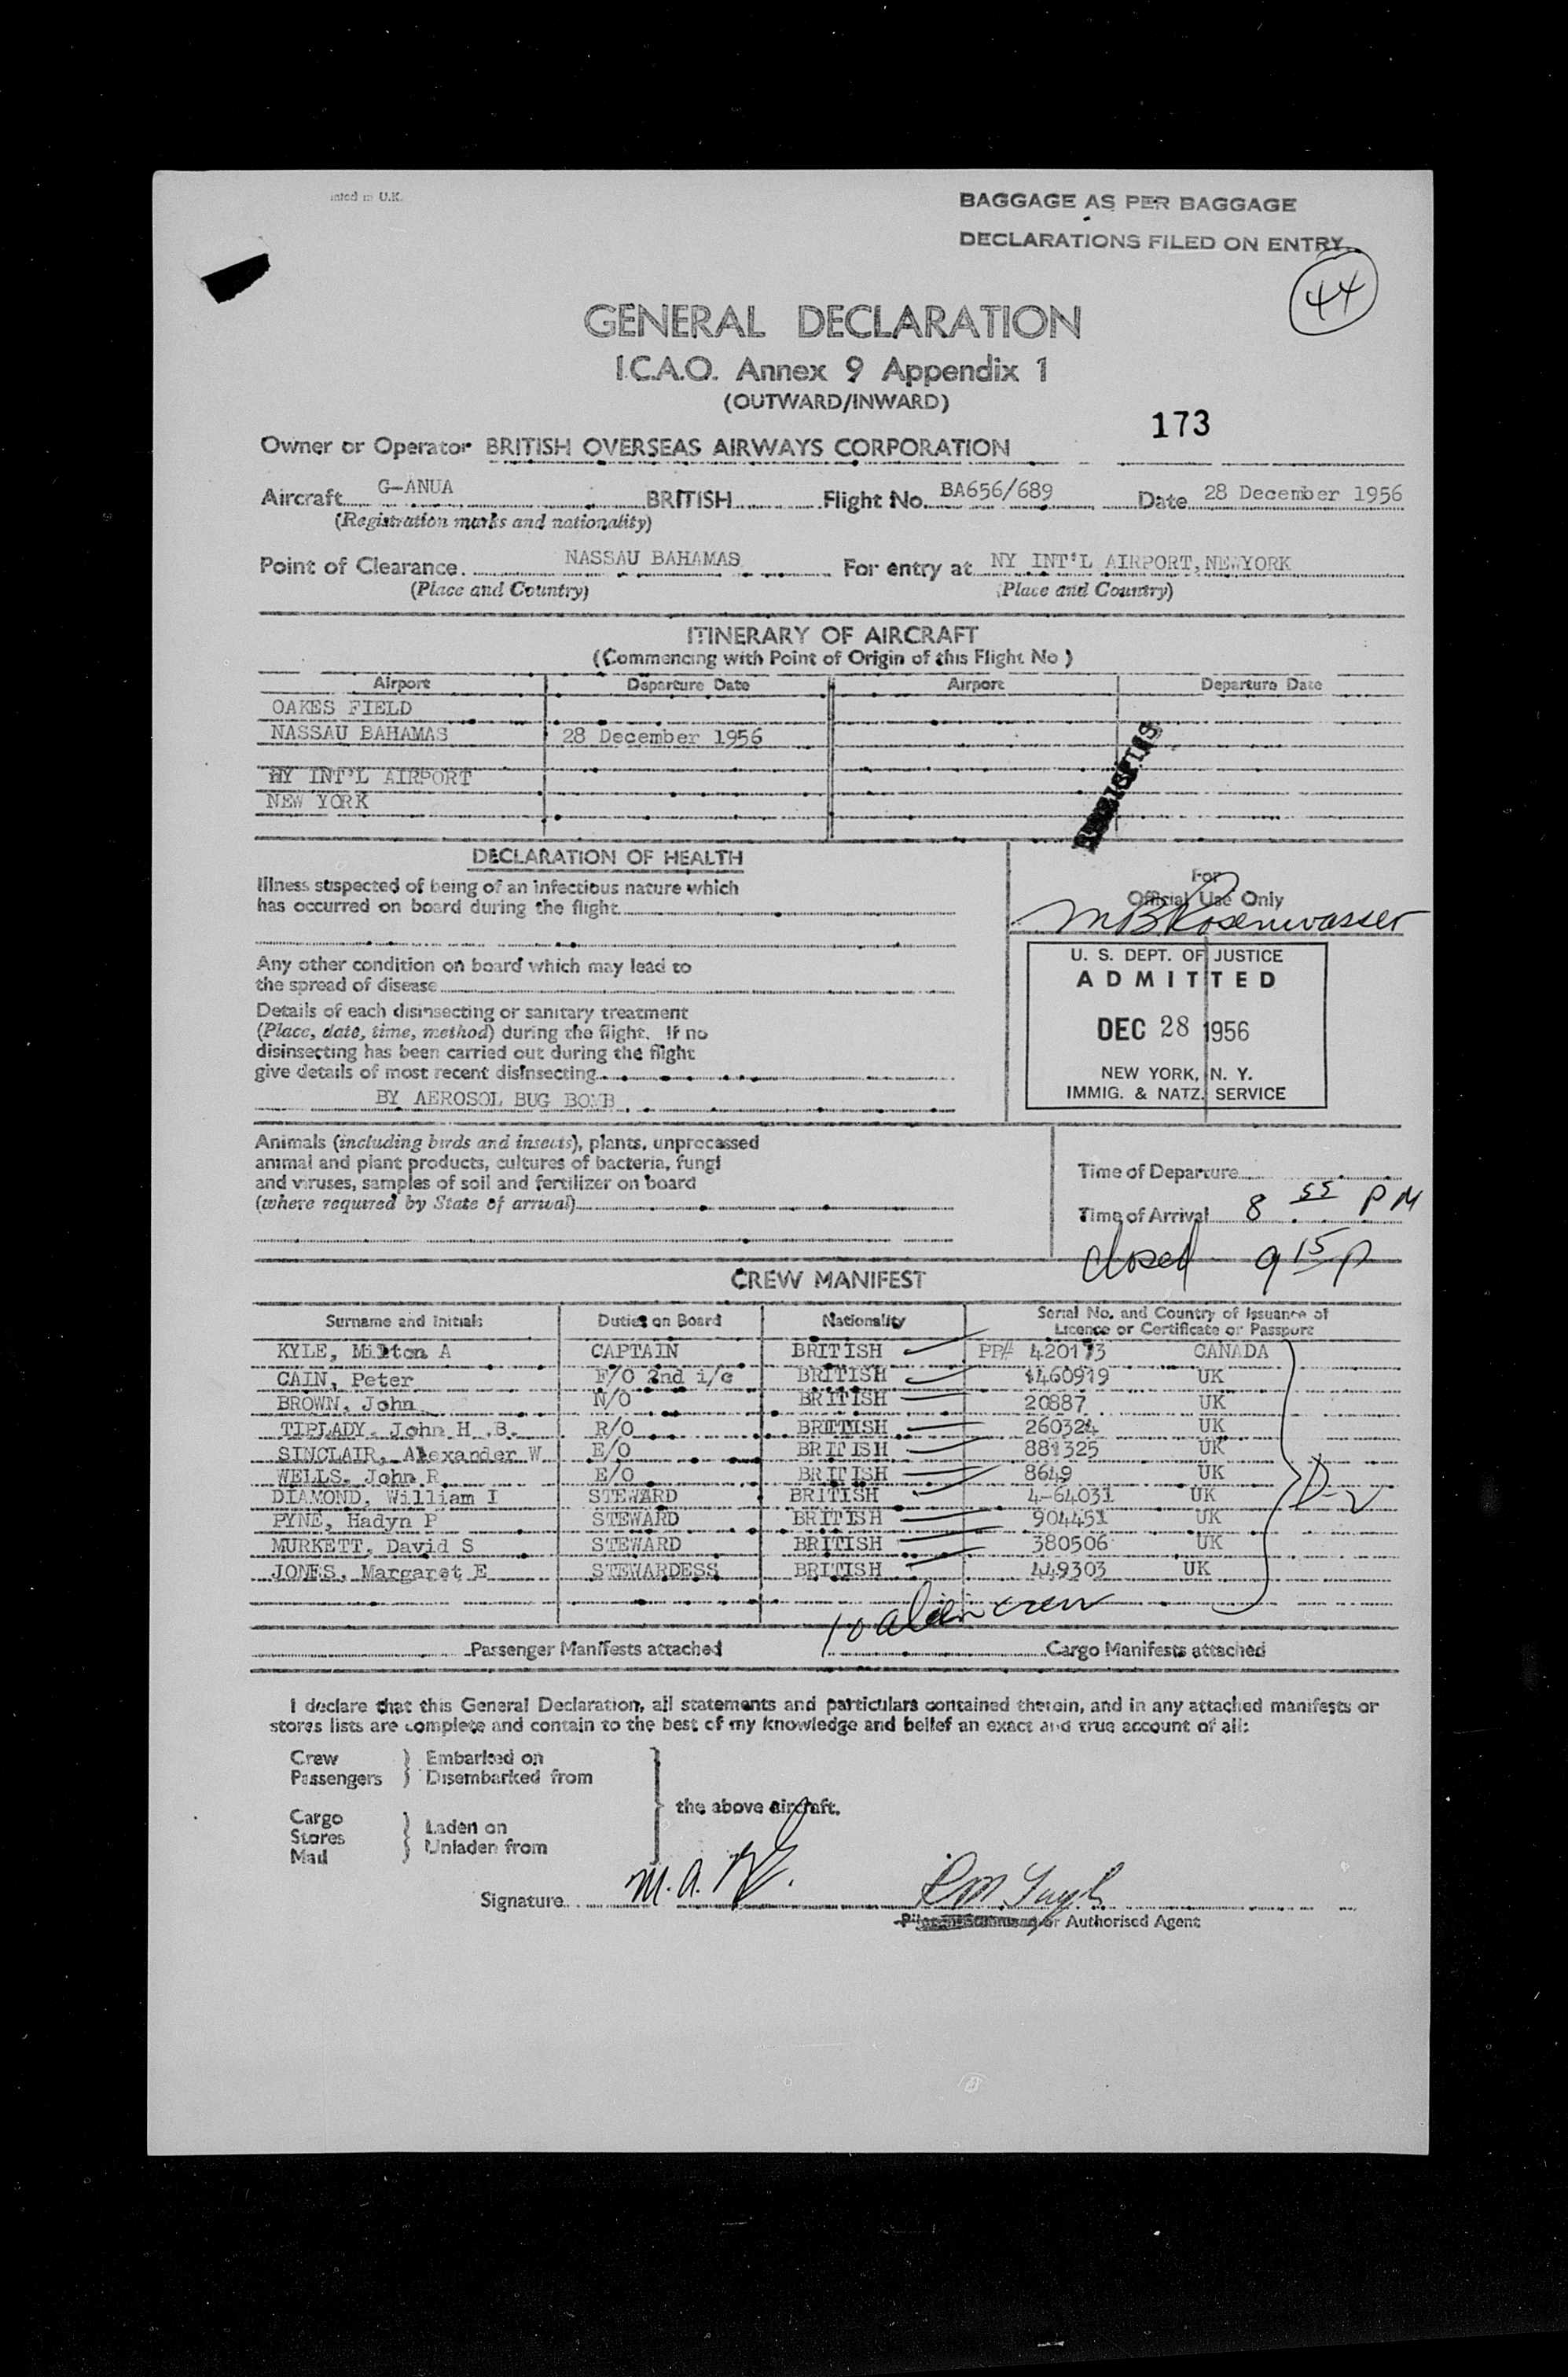 nted in U.K.
BAGGAGE AS PER BAGGAGE
DECLARATIONS FILED ON ENTRY
44
GENERAL DECLARATION
I.C.A.O. Annex 9 Appendix 1
(OUTWARD/INWARD)
173
Owner or Operator BRITISH OVERSEAS AIRWAYS CORPORATION
Aircraft G-ANUA BRITISH Flight No. BA656/689 Date 28 December 1956
(Registration marks and nationality)
Point of Clearance NASSAU BAHAMAS For entry at NY INT'L AIRPORT, NEWYORK
(Place and Country) (Place and Country)
ITINERARY OF AIRCRAFT
(Commencing with Point of Origin of this Flight No )
Airport Departure Date Airport Departure Date
OAKES FIELD
NASSAU BAHAMAS 28 December 1956
NY INT'L AIRPORT
NEW YORK
DECLARATION OF HEALTH
Illness suspected of being of an infectious nature which
has occurred on board during the flight
Any other condition on board which may lead to
the spread of disease
Details of each disinsecting or sanitary treatment
(Place, date, time, method) during the flight. If no
disinsecting has been carried out during the flight
give details of most recent disinsecting
BY AEROSOL BUG BOMB
For
Official Use Only
M B Rosenwasser
U. S. DEPT. OF JUSTICE
ADMITTED
DEC 28 1956
NEW YORK, N. Y.
IMMIG. & NATZ. SERVICE
Animals (including birds and insects), plants, unprocessed
animal and plant products, cultures of bacteria, fungi
and viruses, samples of soil and fertilizer on board
(where required by State of arrival)
Time of Departure
Time of Arrival 8 55 PM
closed 9 15 P
CREW MANIFEST
Surname and Initials Duties on Board Nationality Serial No. and Country of Issuance of
Licence or Certificate or Passport
KYLE, Milton A CAPTAIN BRITISH PP# 420173 CANADA
CAIN, Peter F/O 2nd i/c BRITISH 1460919 UK
BROWN, John N/O BRITISH 20887 UK
TIPLADY, John H .B. R/O BRITTISH 260324 UK
SINCLAIR, Alexander W E/O BRITISH 881325 UK
WELLS, John R E/O BRITISH 8649 UK
DIAMOND, William I STEWARD BRITISH 4-64031 UK
PYNE, Hadyn P STEWARD BRITISH 904451 UK
MURKETT, David S STEWARD BRITISH 380506 UK
JONES, Margaret E STEWARDESS BRITISH 449303 UK
D-2
10 alien crew
Passenger Manifests attached Cargo Manifests attached
I declare that this General Declaration, all statements and particulars contained therein, and in any attached manifests or
stores lists are complete and contain to the best of my knowledge and belief an exact and true account of all:
Crew Embarked on
Passengers Disembarked from
the above aircraft.
Cargo
Stores Laden on
Mail Unladen from
Signature M. A.
or Authorised Agent